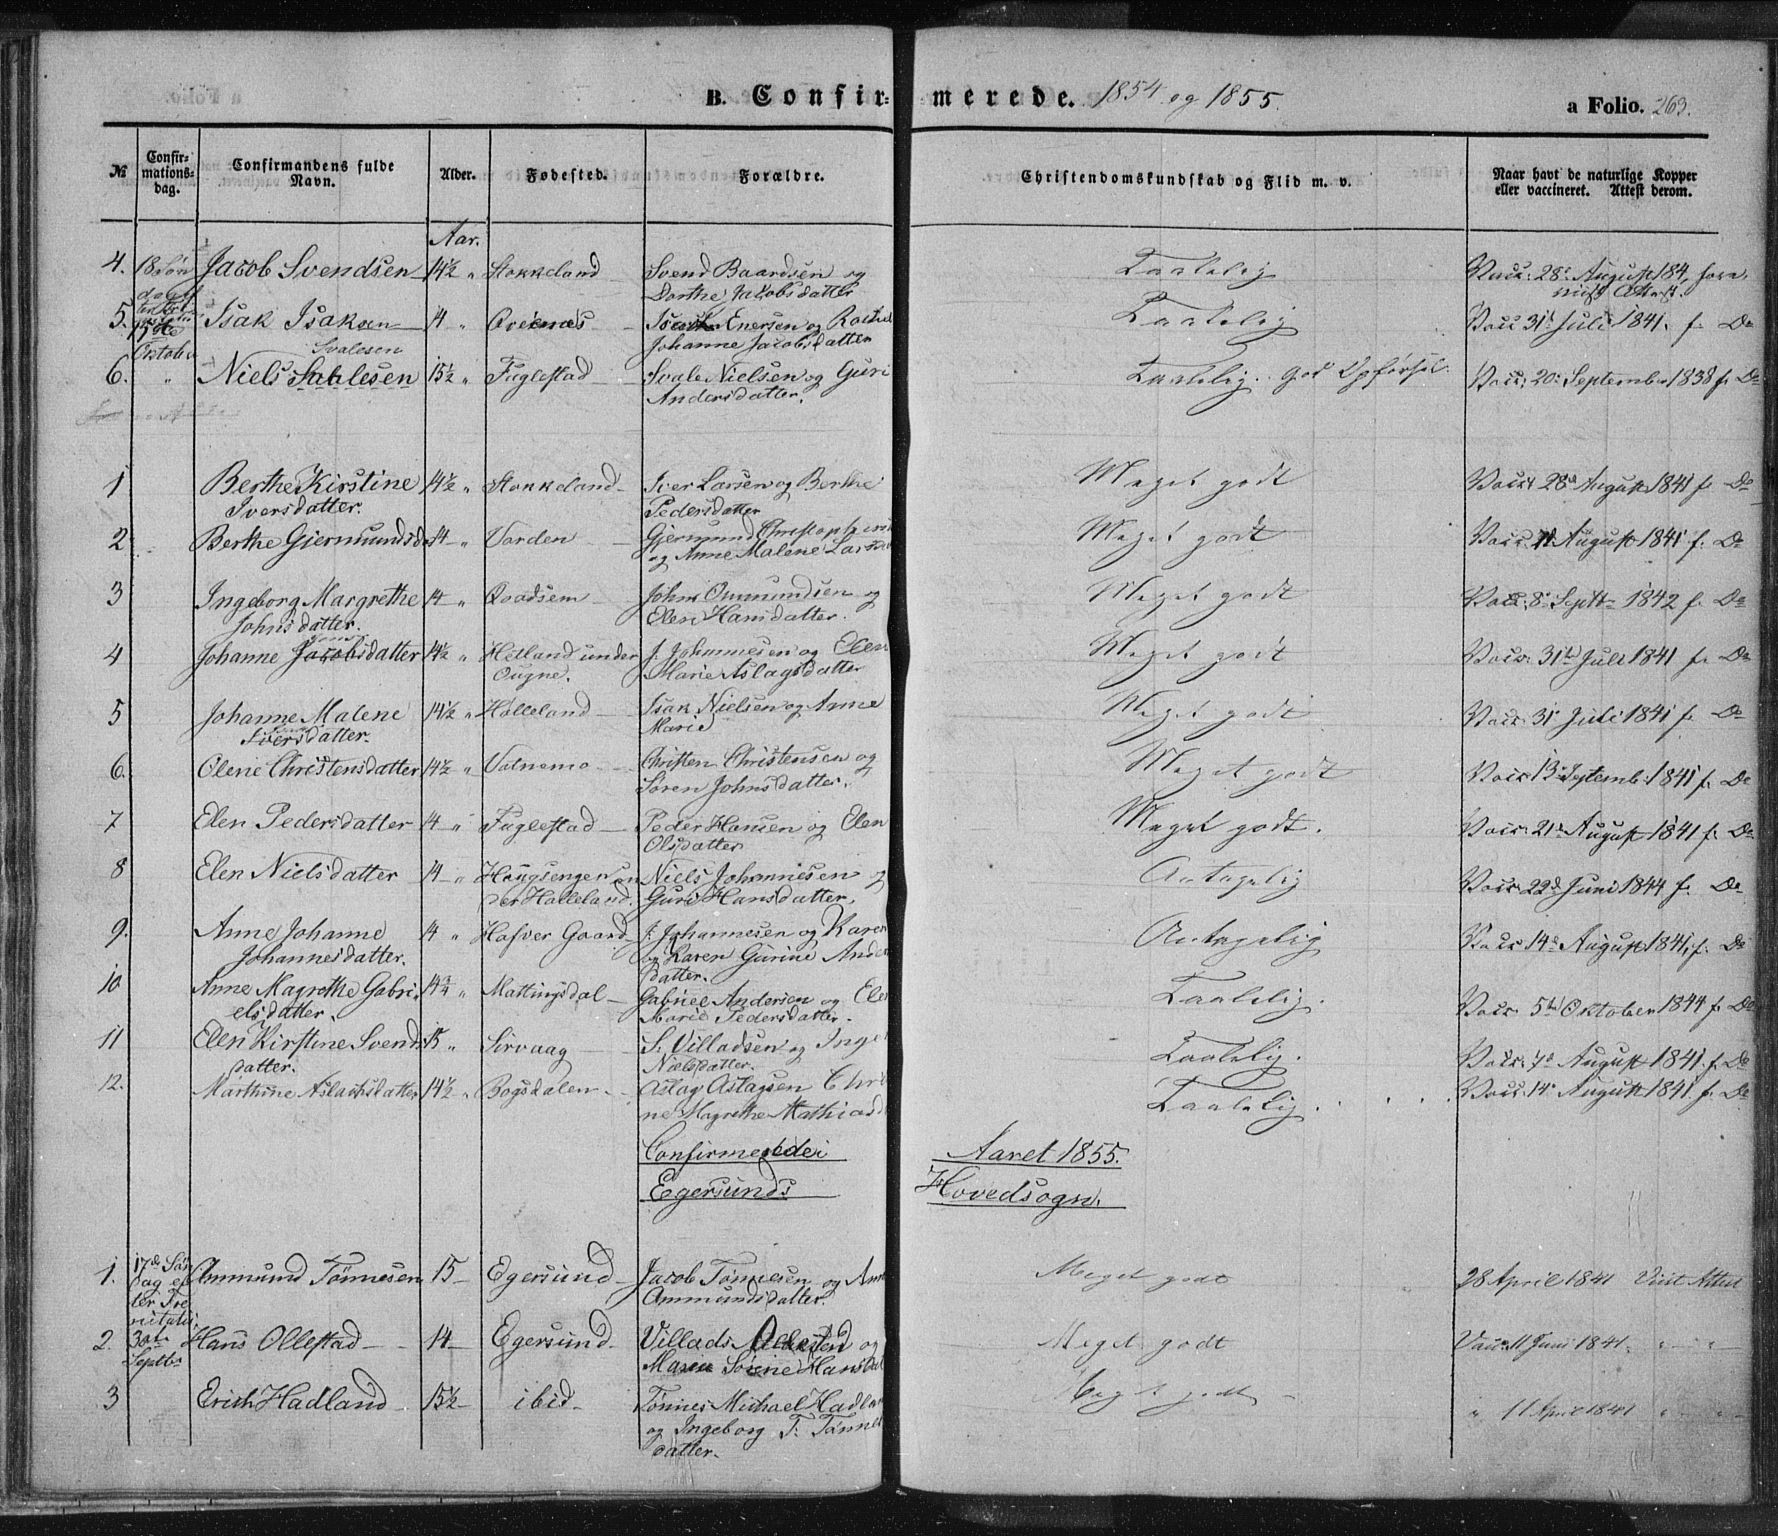 B. Confirmerede. 1854 og 1855. a Folio. 263.
№ Confirmationsdag. Confirmandens fulde Navn. Alder. Fødested. Forældre. Christendomskundskab og Flid m. v. Naar havt de naturlige Kopper eller vaccineret. Attest derom.
Aar.
4. 18 Søn Jacob Svendsen 14½ " Stokkeland Svend Baardsen og Taalelig Vacc: 28 August 184
Dorthe Jakobsdatter
5. Isak Isaksen 14 " Isak Enersen og Rachel Taalelig Vacc 31 Juli 1841. f. Do
15de Oktober Johanne Jacobsdatter
Svalesen
6. " Niels 15½ " Fuglestad Svale Nielsen og Guri Taalelig. God Opførsel. Vacc: 20 September 1838 f. Do
Andersdatter.
1 Berthe Kirstine 14½ " Stokkeland Iver Larsen og Berthe Meget godt Vacc: 28d August 1841 f. Do
Iversdatter. Pedersdatter
2 Berthe Gjermundsda 14 " Varden Gjermund Meget godt Vacc: 11 August 1841 f. Do
og Anne Malene Lars
3 Ingeborg Margrethe 14 " Qvadsem John Ommundsen og Meget godt Vacc: 8 Septr 1842 f. Do
Johnsdatter. Elen Hansdatter.
4 Johanne Jacobsdatter 14½ " Hetland under J. Johannesen og Elen Meget godt Vacc: 31te Juli 1841 f. Do
Ougne. Marie Aslagsdatter
5 Johanne Malene 14½ " Holleland Isak Nielsen og Anne Meget godt Vacc: 31 Juli 1841 f. Do
Iversdatter. Marie
6. Olene Christensdatter 14½ " Vatnemo Christen Christensen og Meget godt Vacc: 13 Septemb: 1841 f. Do
Søren Johnsdatter.
7 Elen Pedersdatter 14 " Fuglestad Peder Hansen og Elen Meget godt. Vacc: 21 August 1841 f. Do
Olsdatter
8 Elen Nielsdatter 14 " Haugsengen un Niels Johannesen og Antagelig Vacc: 22d Juni 1844 f. Do
der Holleland. Guri Hansdatter.
9. Anne Johanne 14 " Hafver Gaard J. Johannesen og Karen Antagelig Vacc 14d August 1841 f. Do
Johannesdatter. og Karen Gurine Anders
datter.
10 Anne Magrethe Gabri 14¾ " Mattingsdal Gabriel Andersen og Elen Taalelig. Vacc 5te Oktober 1844 f. Do
elsdatter. Marie Pedersdatter.
11 Elen Kirstine Svends 15 " Sirvaag S. Villadsen og Inge Taalelig. Vacc: 7d August 1841. f. Do
datter. Nielsdatter.
12. Marthine Aslachsdatter 14½ " Bogsdalen Aslag Aslagsen Chri Taalelig Vacc: 14 August 1841. f. Do
ne Magrethe Mathiasd
Confirmerede i Aaret 1855.
Egersunds Hovedsogn.
1. 17de Søn Ommund Tønnesen 15 Egersund Jacob Tønnesen og Anne Meget godt 28 April 1841 Viist Attest
dag ef Ommundsdatter.
ter Tre
nitatis
2. 30te Hans Ollestad 14 Egersund Villads Ollestad og Meget godt Vacc: 11 Juni 1841. " "
Septbr Maria Sørine Hansdat
3 Erich Hadland 15½ ibid Tønnes Michael Hadland Meget godt " 11 April 1841 " "
og Ingeborg T. Tønnes
datter.